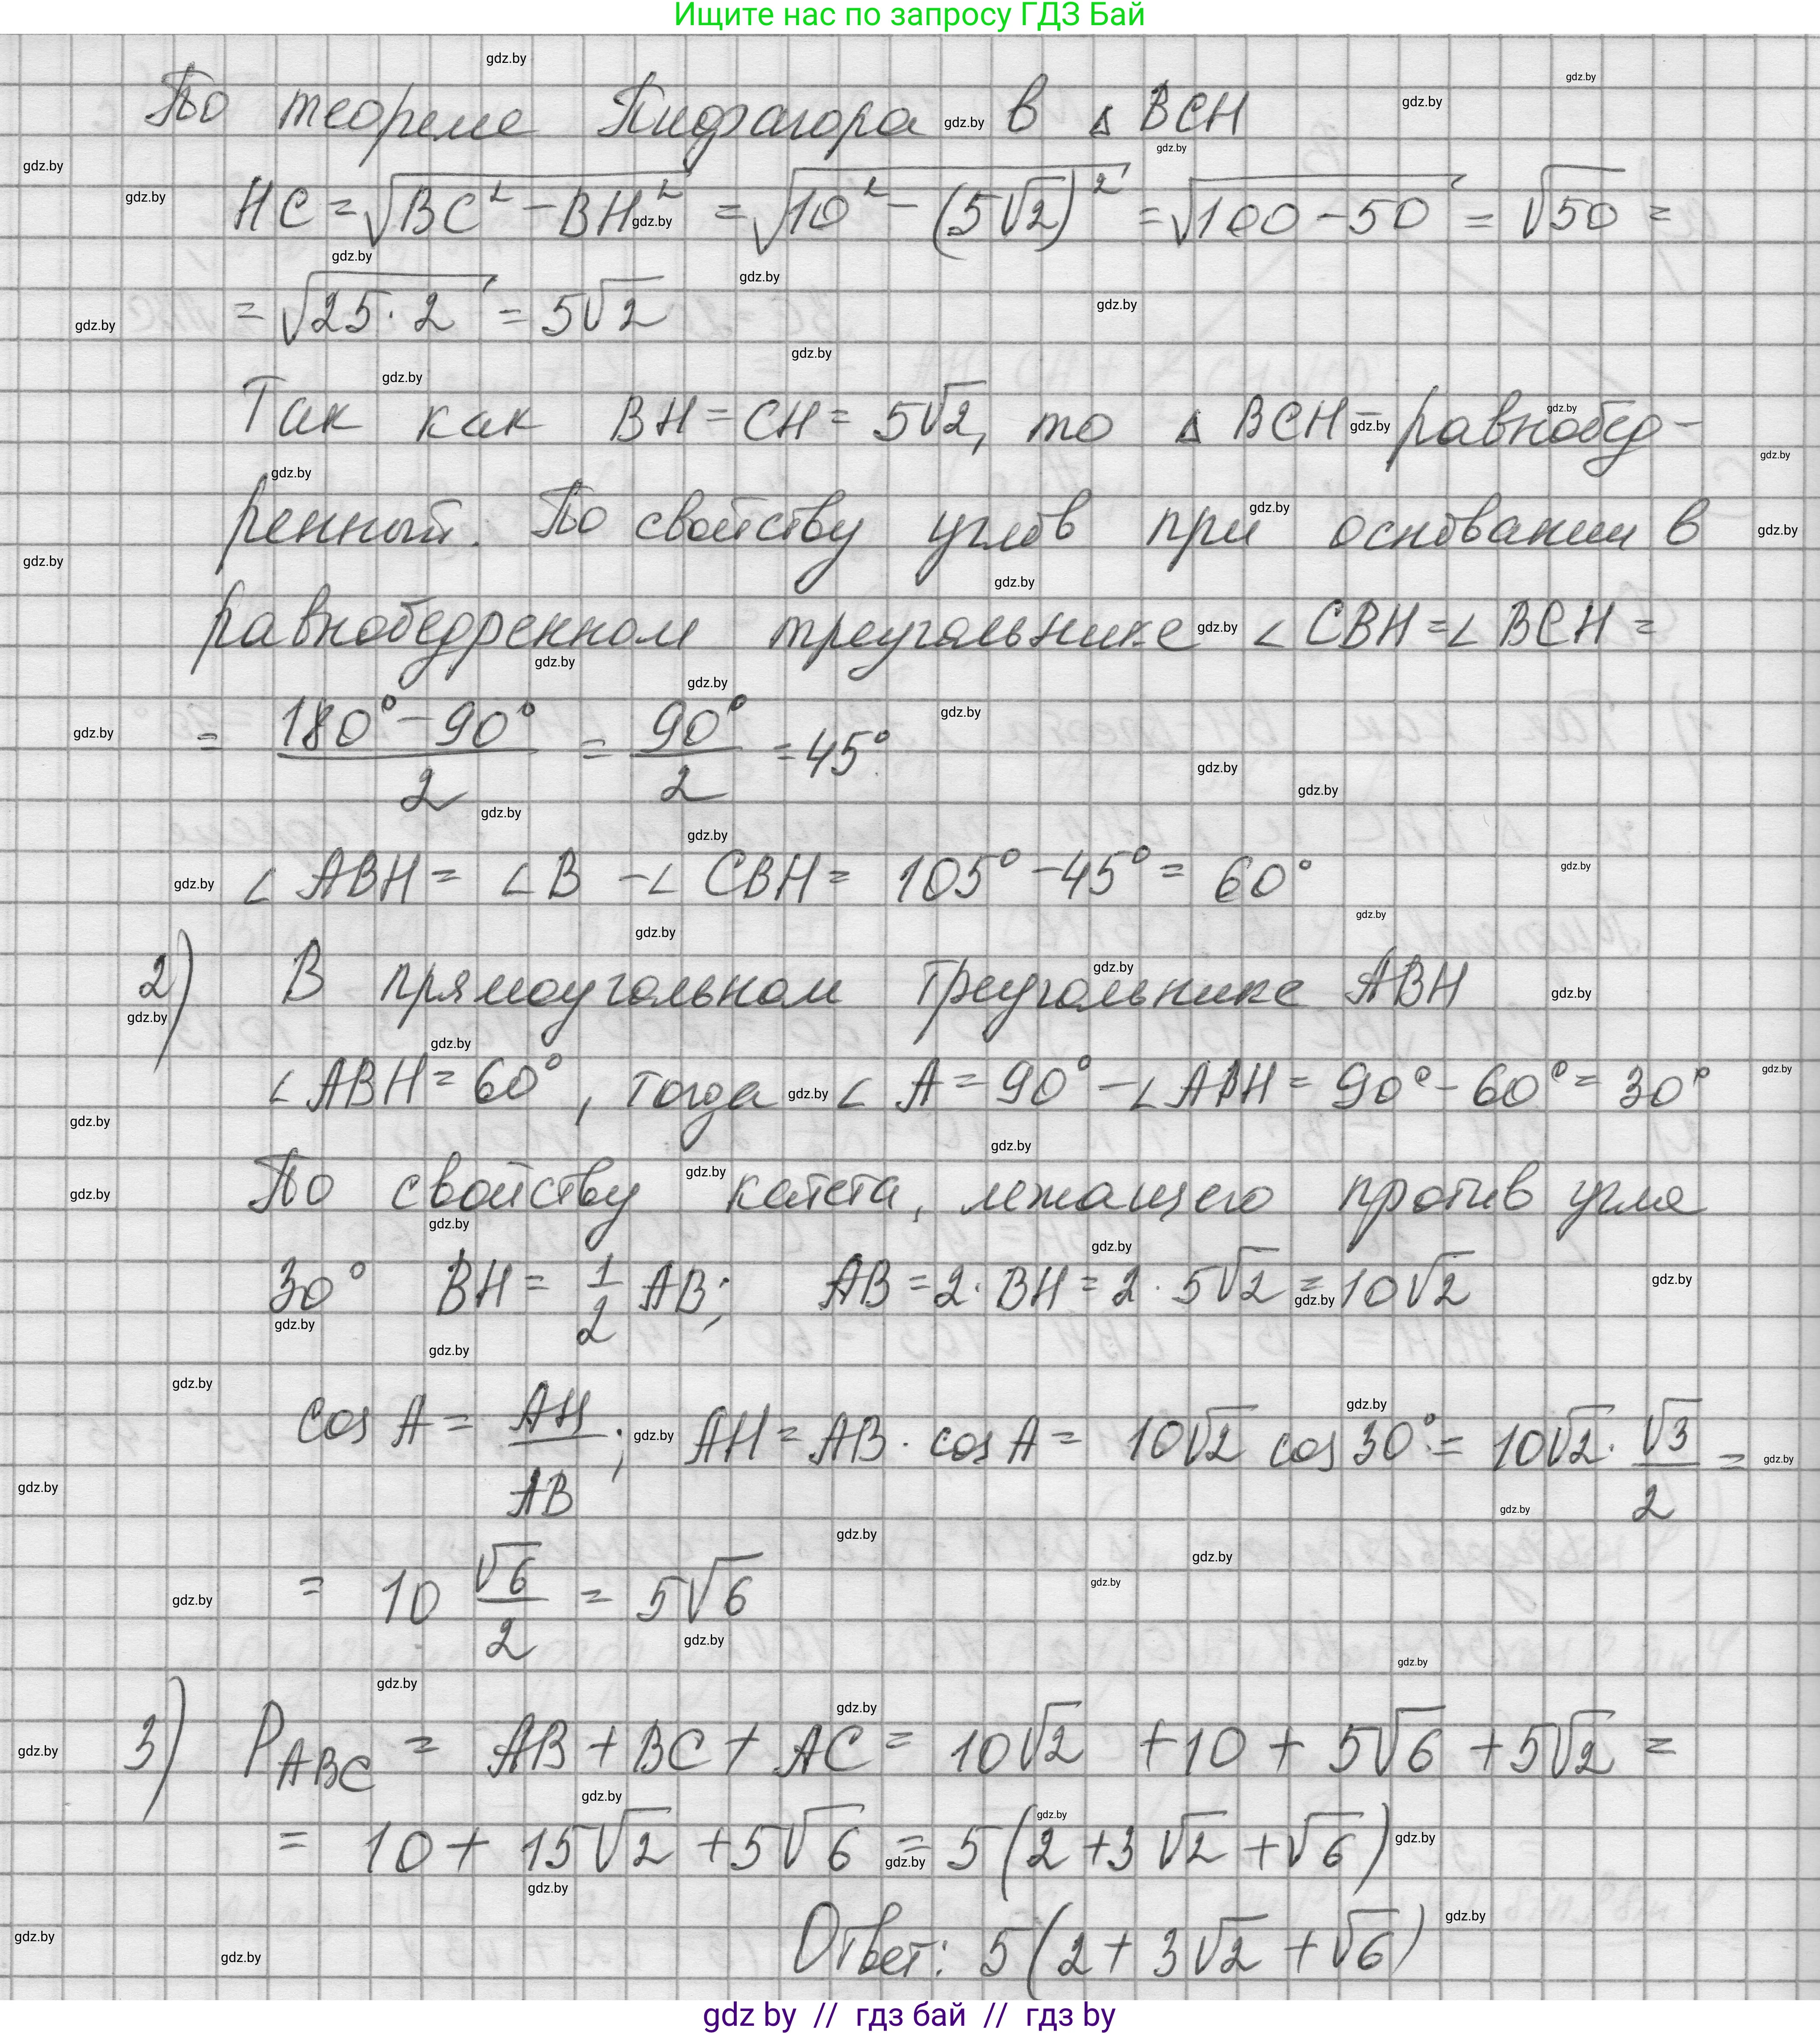 Ищите нас по запросу ГДЗ Бай
По теореме Пифагора в △ BCH
HC = √(BC² − BH²) = √(10² − (5√2)²) = √(100 − 50) = √50 =
= √(25 · 2) = 5√2
Так как BH = CH = 5√2, то △ BCH – равнобед-
ренный. По свойству углов при основании в
равнобедренном треугольнике ∠ CBH = ∠ BCH =
= (180° − 90°)/2 = 90°/2 = 45°
∠ ABH = ∠ B − ∠ CBH = 105° − 45° = 60°
2) В прямоугольном треугольнике ABH
∠ ABH = 60°, тогда ∠ A = 90° − ∠ ABH = 90° − 60° = 30°
По свойству катета, лежащего против угла
30° BH = 1/2 AB; AB = 2 · BH = 2 · 5√2 = 10√2
cos A = AH/AB; AH = AB · cos A = 10√2 cos 30° = 10√2 · √3/2 =
= 10 √6/2 = 5√6
3) P_ABC = AB + BC + AC = 10√2 + 10 + 5√6 + 5√2 =
= 10 + 15√2 + 5√6 = 5 (2 + 3√2 + √6)
Ответ: 5 (2 + 3√2 + √6)
gdz by // гдз бай // гдз by